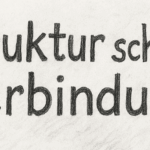 ruktur sch
erbindu